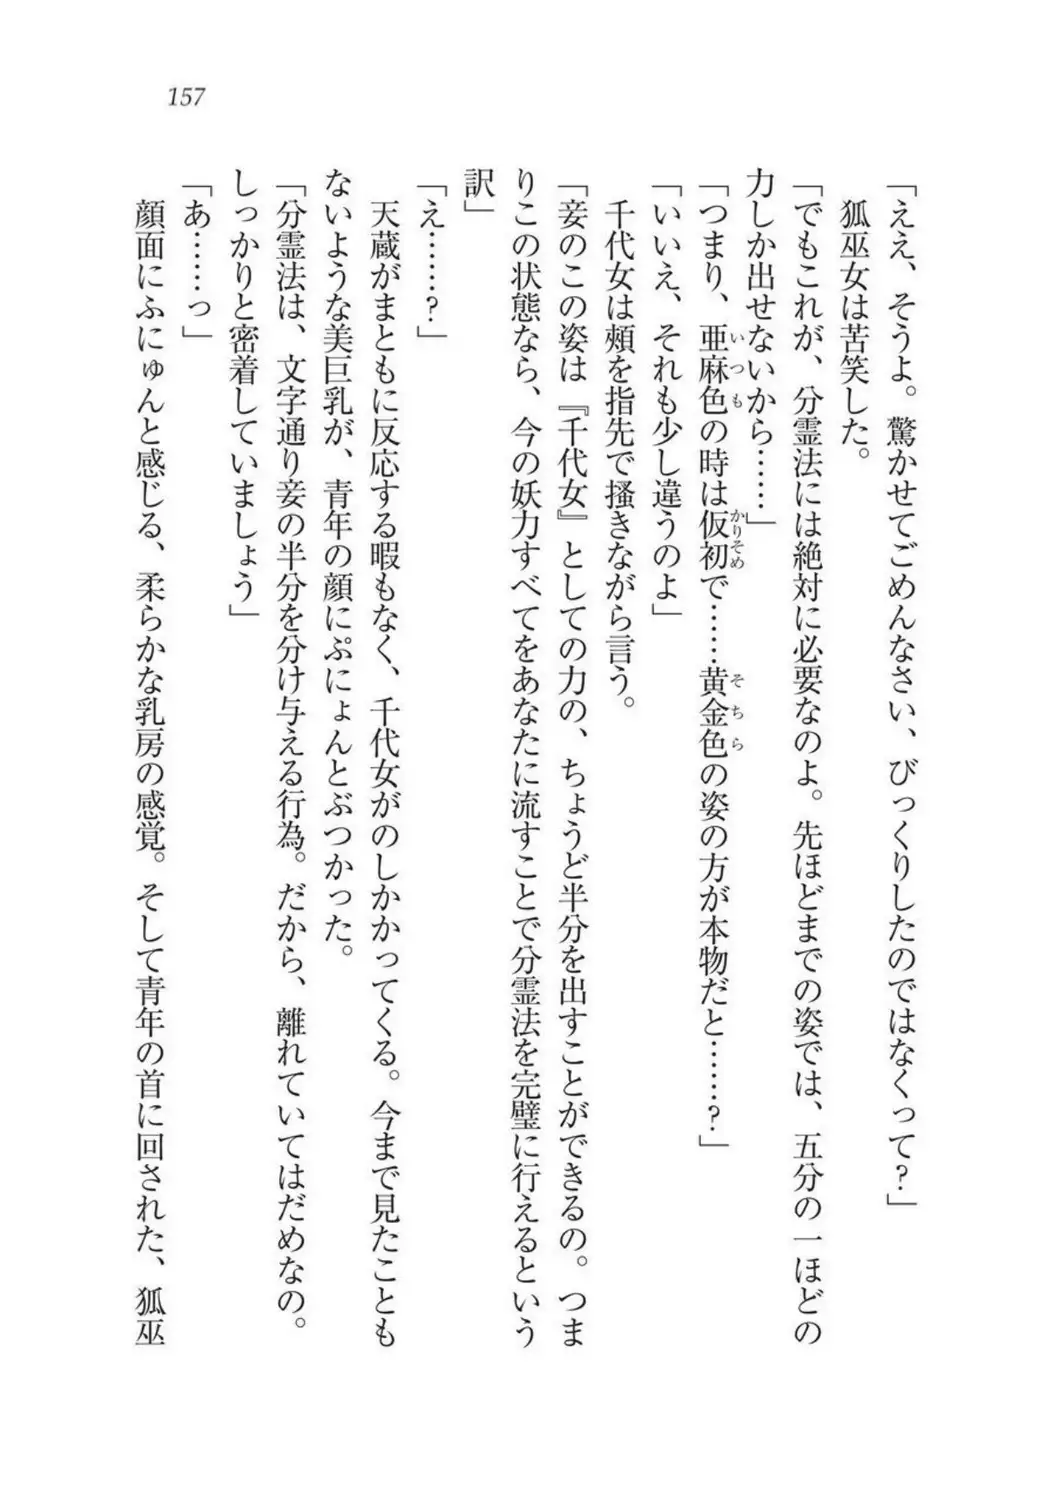 157
「ええ、そうよ。驚かせてごめんなさい、びっくりしたのではなくって?」
狐巫女は苦笑した。
「でもこれが、分霊法には絶対に必要なのよ。先ほどまでの姿では、五分の一ほどの
力しか出せないから……」
「つまり、亜麻色の時は仮初で……黄金色の姿の方が本物だと……?」
いつも
かりそめ
そちら
「いいえ、それも少し違うのよ」
千代女は頰を指先で掻きながら言う。
「妾のこの姿は『千代女』としての力の、ちょうど半分を出すことができるの。つま
りこの状態なら、今の妖力すべてをあなたに流すことで分霊法を完璧に行えるという
訳」
「え……?」
天蔵がまともに反応する暇もなく、千代女がのしかかってくる。今まで見たことも
ないような美巨乳が、青年の顔にぷにょんとぶつかった。
「分霊法は、文字通り妾の半分を分け与える行為。だから、離れていてはだめなの。
しっかりと密着していましょう」
「あ……っ」
顔面にふにゅんと感じる、柔らかな乳房の感覚。そして青年の首に回された、狐巫